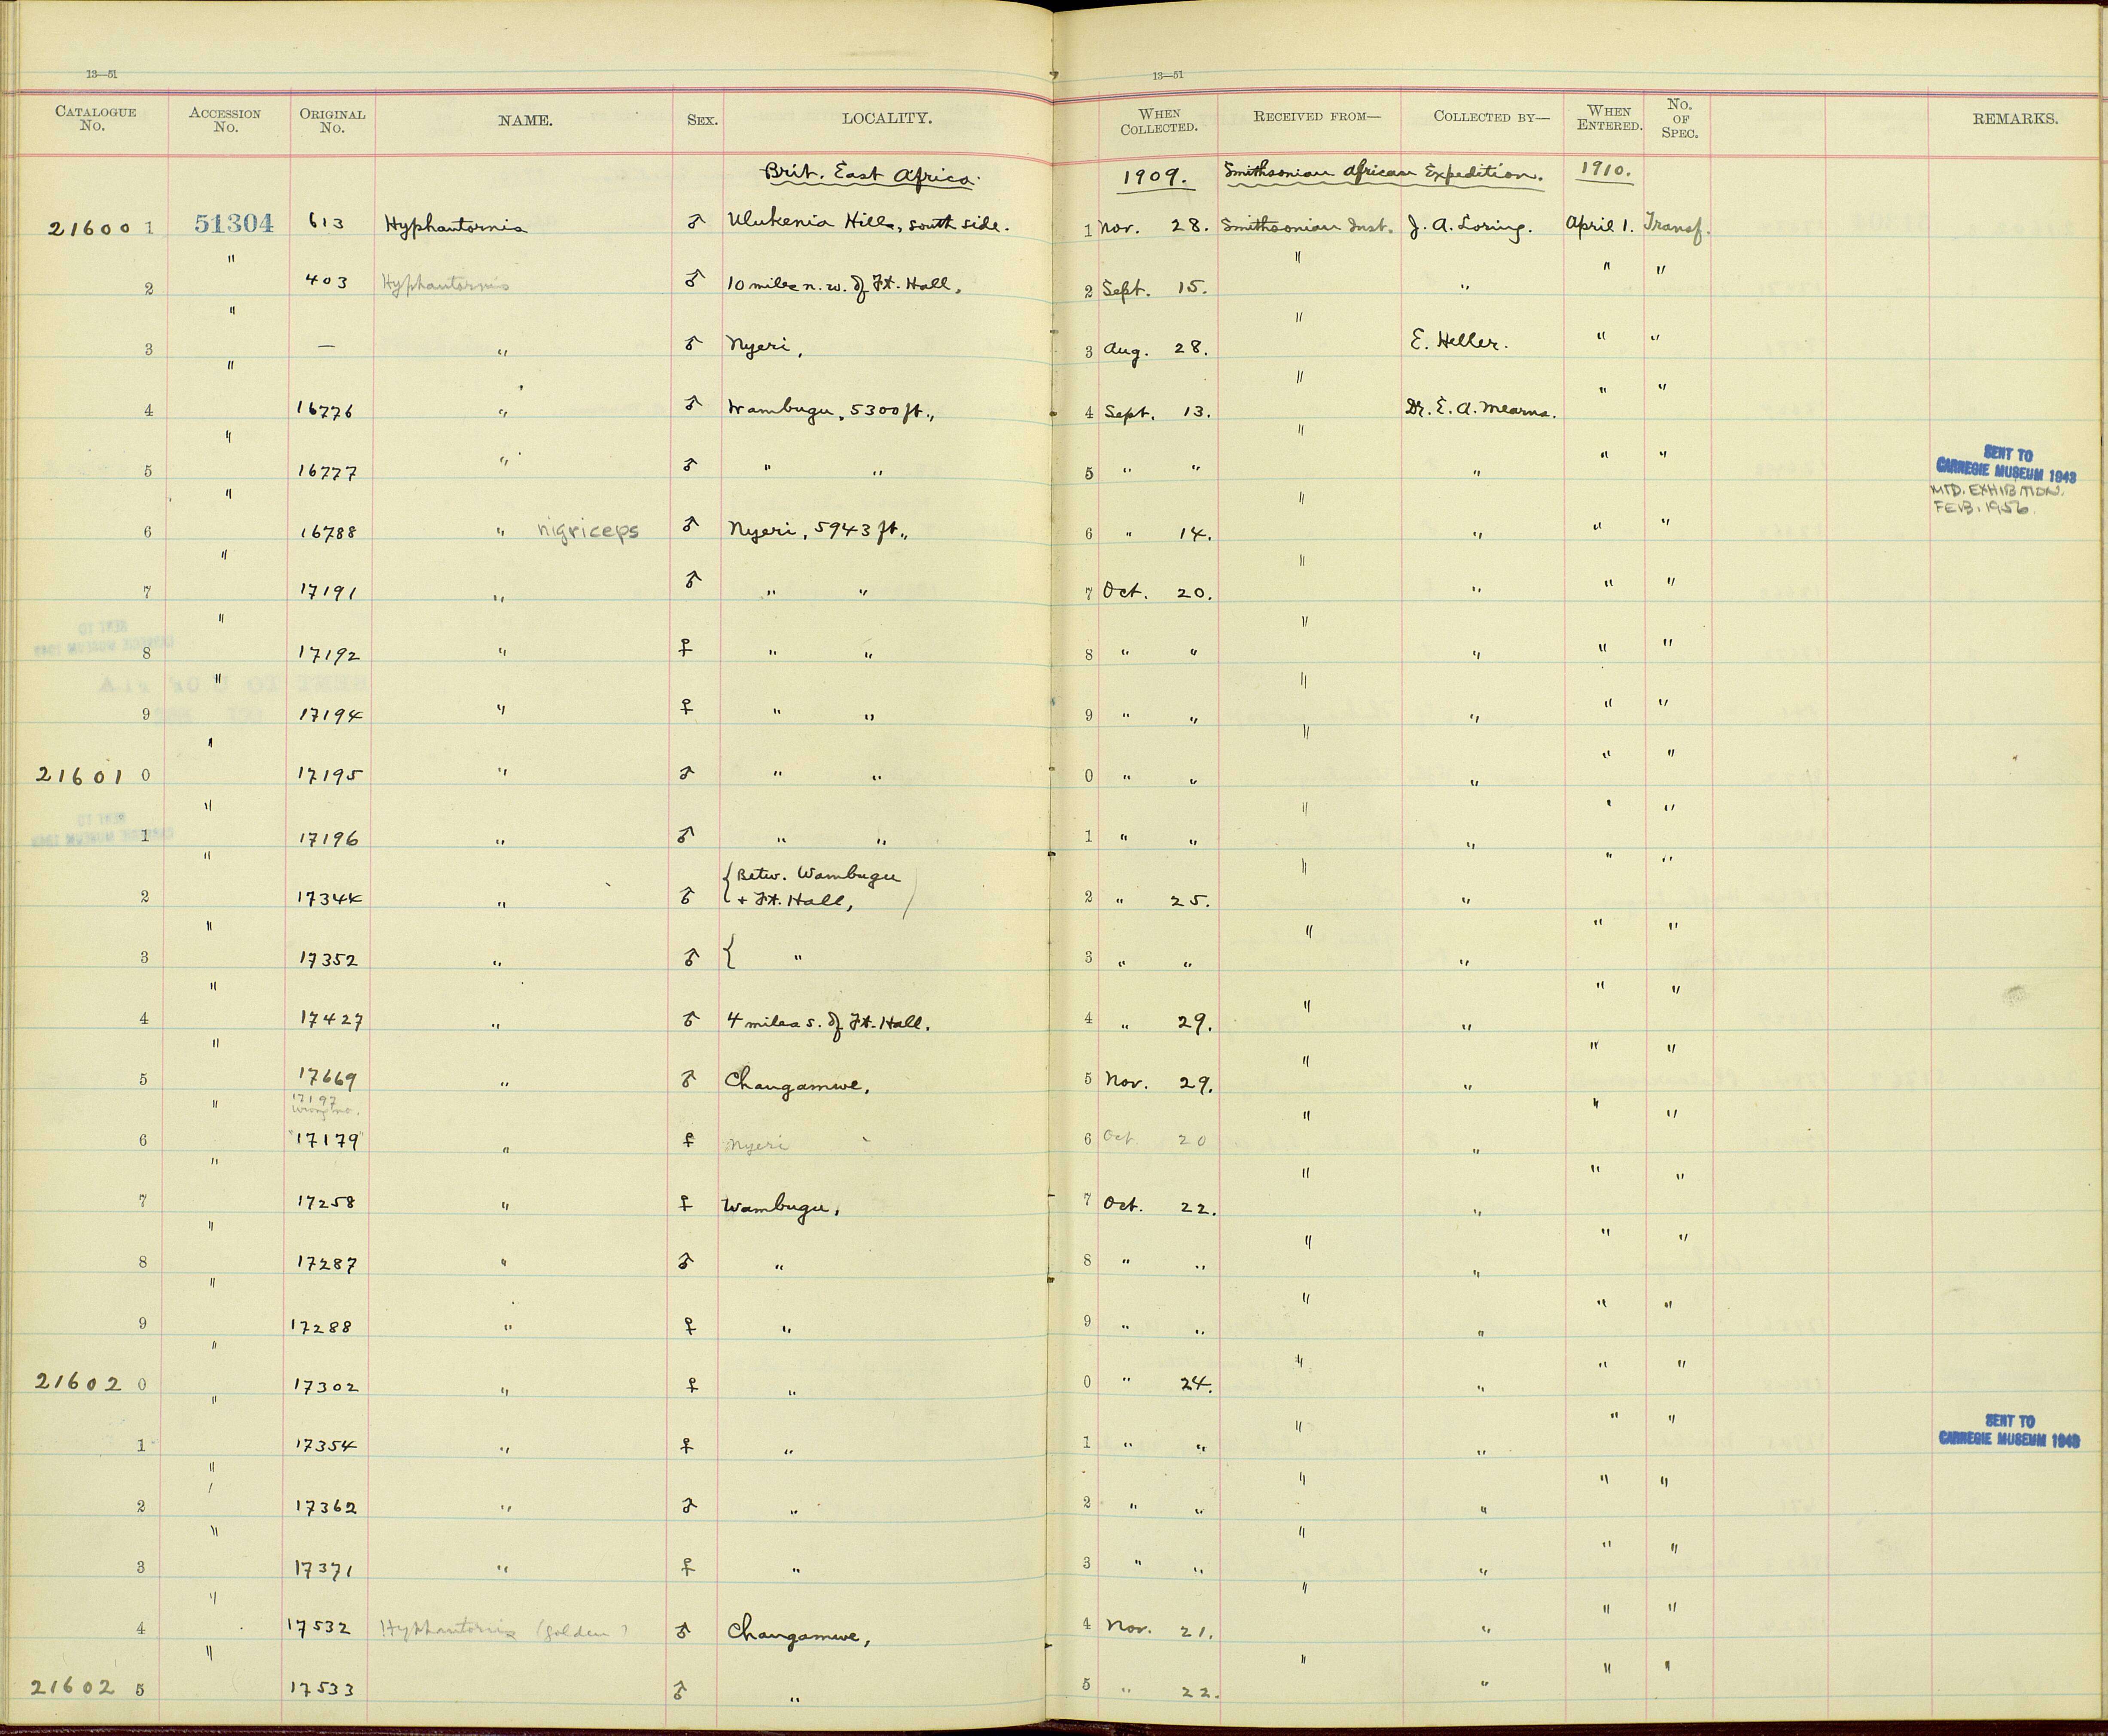 13—51
13—51
CATALOGUE No. ACCESSION No. ORIGINAL No. NAME. SEX. LOCALITY. WHEN COLLECTED. RECEIVED FROM— COLLECTED BY— WHEN ENTERED. No. OF SPEC. REMARKS.
Brit. East Africa. 1909. Smithsonian African Expedition. 1910.
21600 1 51304 613 Hyphantornis ♂ Ulukenia Hills, south side. 1 Nov. 28. Smithsonian Inst. J. A. Loring. April 1. Transf.
2 " 403 Hyphantornis ♂ 10 miles n. w. of Ft. Hall. 2 Sept. 15. " " " "
3 " — " ♂ Nyeri, 3 Aug. 28. " E. Heller. " "
4 " 16776 " ♂ Wambugu, 5300 ft., 4 Sept. 13. " Dr. E. A. Mearns. " "
5 " 16777 " ♂ " " 5 " " " " " " SENT TO CARNEGIE MUSEUM 1943
MTD. EXHIBITION.
FEB. 1956.
6 " 16788 " nigriceps ♂ Nyeri, 5943 ft., 6 " 14. " " " "
7 " 17191 " ♂ " " 7 Oct. 20. " " " "
8 " 17192 " ♀ " " 8 " " " " " "
9 " 17194 " ♀ " " 9 " " " " " "
21601 0 " 17195 " ♂ " " 0 " " " " " "
1 " 17196 " ♂ " " 1 " " " " " "
2 " 17344 " ♂ { Betw. Wambugu
+ Ft. Hall, 2 " 25. " " " "
3 " 17352 " ♂ { " 3 " " " " " "
4 " 17427 " ♂ 4 miles s. of Ft. Hall. 4 " 29. " " " "
5 " 17669 " ♂ Changamwe, 5 Nov. 29. " " " "
17197
wrong no.
6 " "17179" " ♀ Nyeri 6 Oct. 20 " " " "
7 " 17258 " ♀ Wambugu, 7 Oct. 22. " " " "
8 " 17287 " ♂ " 8 " " " " " "
9 " 17288 " ♀ " 9 " " " " " "
21602 0 " 17302 " ♀ " 0 " 24. " " " "
1 " 17354 " ♀ " 1 " " " " " " SENT TO CARNEGIE MUSEUM 1943
2 " 17362 " ♂ " 2 " " " " " "
3 " 17371 " ♀ " 3 " " " " " "
4 " 17532 Hyphantornis (golden) ♂ Changamwe, 4 Nov. 21. " " " "
21602 5 " 17533 ♂ " 5 " 22. " " " "